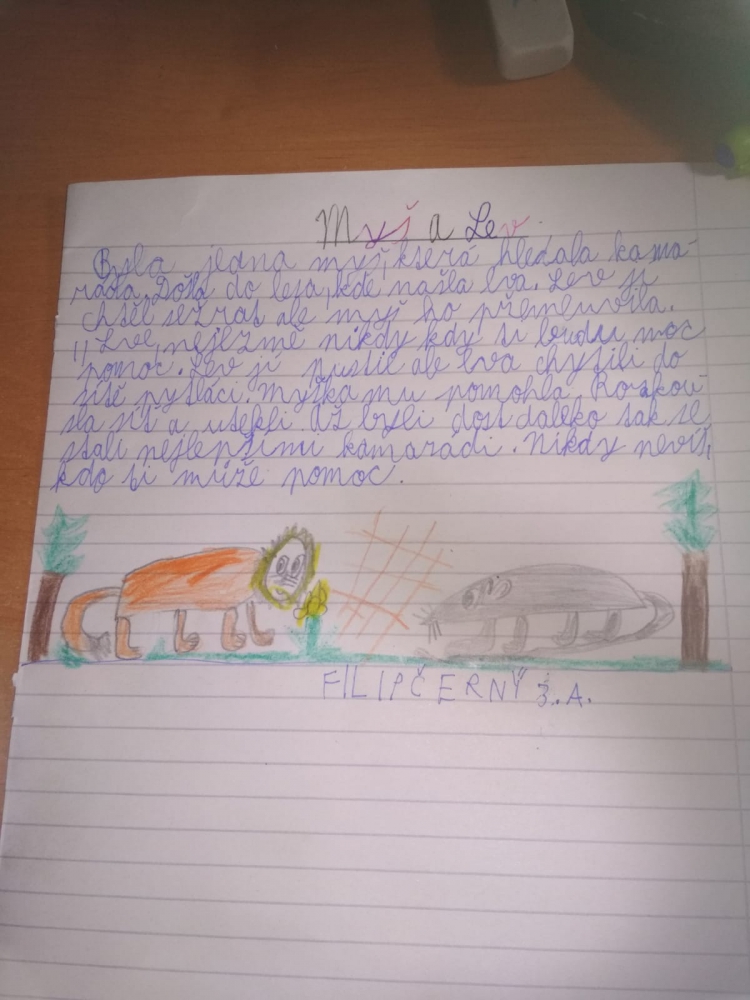 Myš a Lev.
Byla jedna myš, která hledala kama-
ráda. Došla do lesa, kde našla lva. Lev ji
chtěl sežrat ale myš ho přemluvila.
,, Lve, nejezmě nikdy kdy ti budu moc
pomoc. Lev ji pustil ale lva chytili do
sítě pytláci. Myška mu pomohla. Rozkou-
sla síť a utekli. Až byli dost daleko tak se
stali nejlepšími kamarádi. Nikdy nevíš,
kdo ti může pomoc.
FILIP ČERNÝ 3. A.